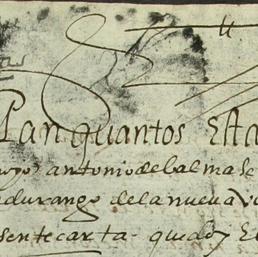 pan quantos Esta
yo antonio de balmase
durango de la nueva
sente carta que doy